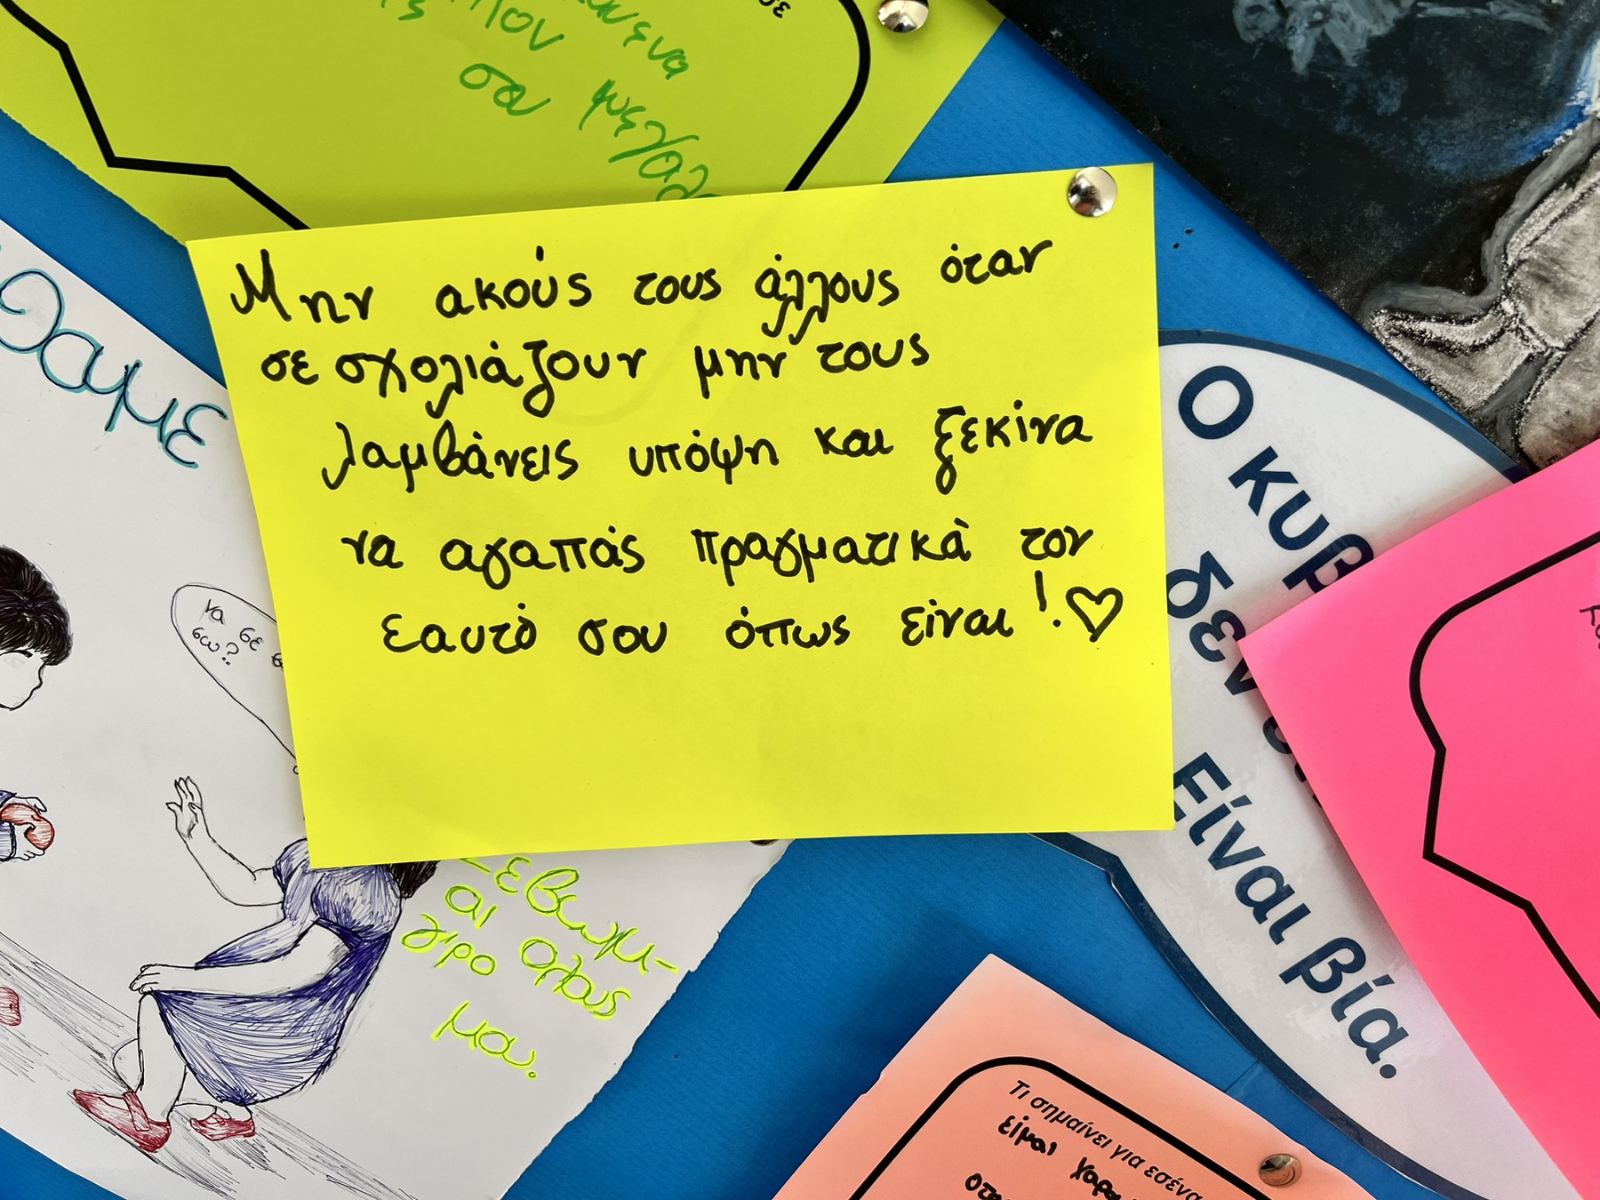 σα μεγαλ
Μην ακούς τους άλλους όταν
σε σχολιάζουν μην τους
λαμβάνεις υπόψη και ξεκίνα
να αγαπάς πραγματικά τον
εαυτό σου όπως είναι!♡
θαμε
να σε
σου?
Ο κυβ
δεν
Είναι βία.
Σεβωμ-
αι όλους
γύρο
μου.
Τι σημαίνει για εσένα
είμαι χαρο
οτα